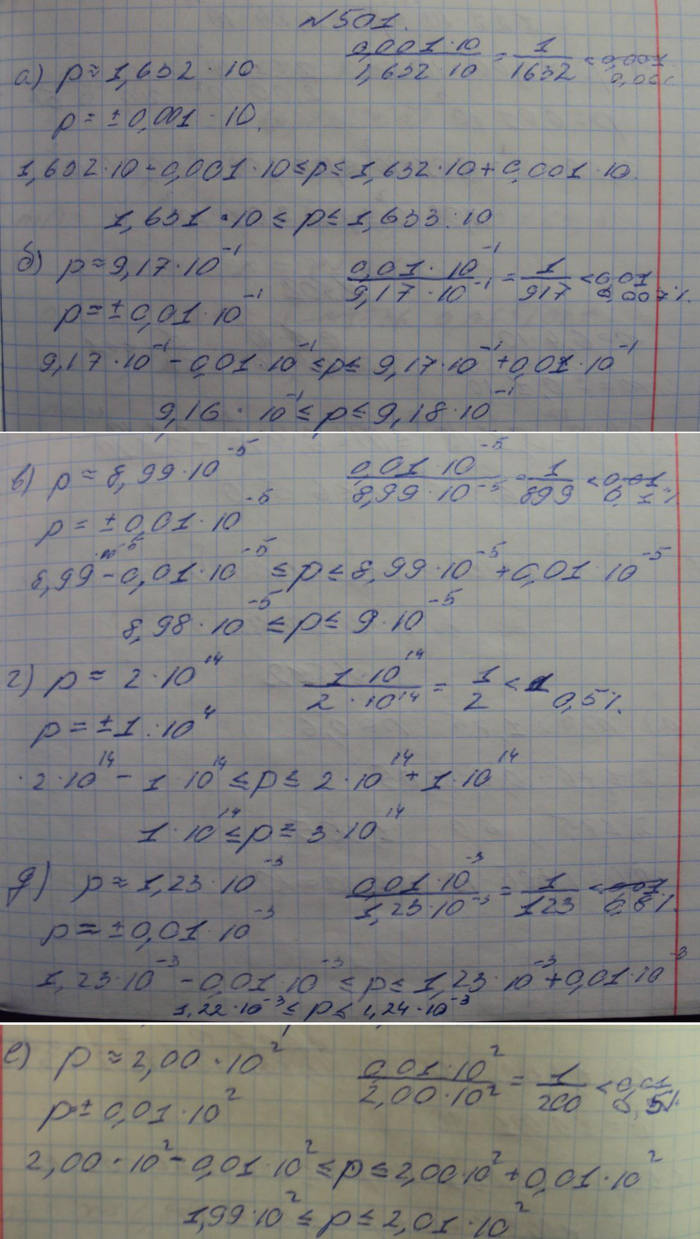 N501.
а) p ≈ 1,632 · 10
0,001 · 10 / 1,632 · 10 = 1/1632 < 0,001
p = ± 0,001 · 10.
1,632 · 10 - 0,001 · 10 ≤ p ≤ 1,632 · 10 + 0,001 · 10.
1,631 · 10 ≤ p ≤ 1,633 · 10
б) p ≈ 9,17 · 10⁻¹
0,01 · 10⁻¹ / 9,17 · 10⁻¹ = 1/917 < 0,01
0,007%.
p = ± 0,01 · 10⁻¹
9,17 · 10⁻¹ - 0,01 · 10⁻¹ ≤ p ≤ 9,17 · 10⁻¹ + 0,01 · 10⁻¹
9,16 · 10⁻¹ ≤ p ≤ 9,18 · 10⁻¹
в) p ≈ 8,99 · 10⁻⁵
0,01 · 10⁻⁵ / 8,99 · 10⁻⁵ = 1/899 < 0,01
0,1%
p = ± 0,01 · 10⁻⁵
8,99 · 10⁻⁵ - 0,01 · 10⁻⁵ ≤ p ≤ 8,99 · 10⁻⁵ + 0,01 · 10⁻⁵
8,98 · 10⁻⁵ ≤ p ≤ 9 · 10⁻⁵
г) p ≈ 2 · 10¹⁴
1 · 10¹⁴ / 2 · 10¹⁴ = 1/2 < 1
0,5%.
p = ± 1 · 10⁴
2 · 10¹⁴ - 1 · 10¹⁴ ≤ p ≤ 2 · 10¹⁴ + 1 · 10¹⁴
1 · 10¹⁴ ≤ p ≤ 3 · 10¹⁴
д) p ≈ 1,23 · 10⁻³
0,01 · 10⁻³ / 1,23 · 10⁻³ = 1/123 < 0,01
0,8%.
p ≈ ± 0,01 · 10⁻³
1,23 · 10⁻³ - 0,01 · 10⁻³ ≤ p ≤ 1,23 · 10⁻³ + 0,01 · 10⁻³
1,22 · 10⁻³ ≤ p ≤ 1,24 · 10⁻³
е) p ≈ 2,00 · 10²
0,01 · 10² / 2,00 · 10² = 1/200 < 0,01
0,5%
p ± 0,01 · 10²
2,00 · 10² - 0,01 · 10² ≤ p ≤ 2,00 · 10² + 0,01 · 10²
1,99 · 10² ≤ p ≤ 2,01 · 10²